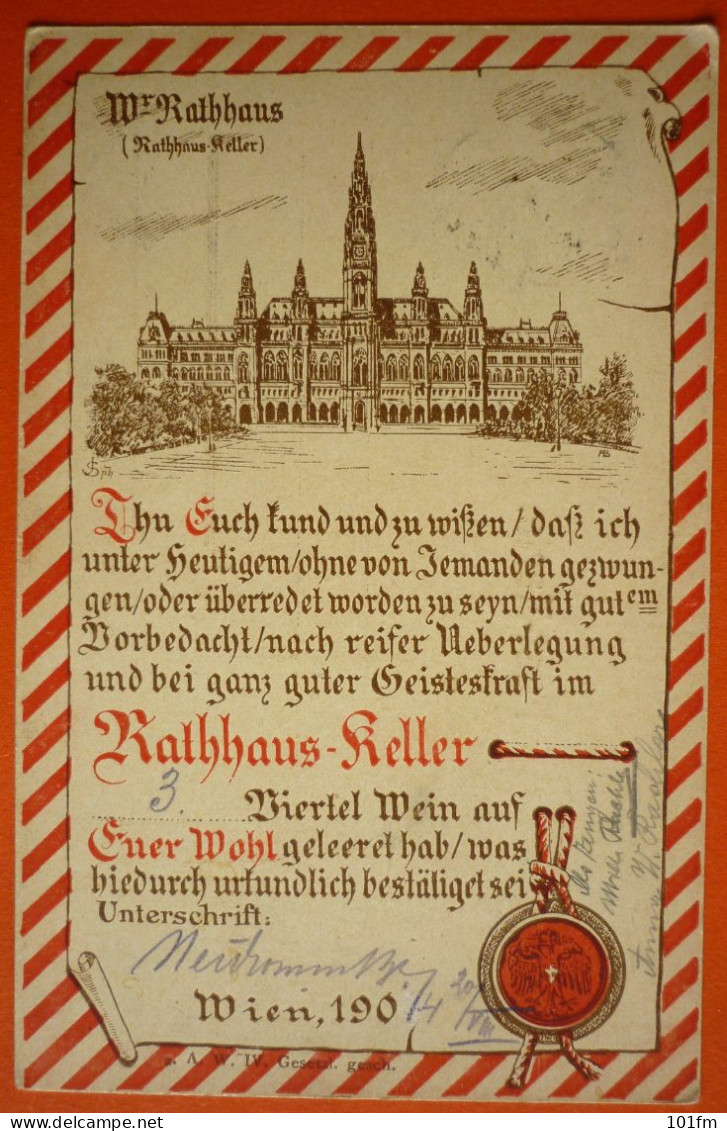 Wr Rathhaus
(Rathhaus-Keller)
Thu Euch kund und zu wißen/daß ich
unter Heutigem/ohne von Jemanden gezwun-
gen/oder überredet worden zu seyn/mit gutem
Vorbedacht/nach reifer Ueberlegung
und bei ganz guter Geisteskraft im
Rathhaus-Keller
3. Viertel Wein auf
Euer Wohl geleeret hab/was
hiedurch urkundlich bestätiget sei
Unterschrift:
Wien, 190 4 20/VIII
z. A. W. IV. Gesetzl. gesch.
101fm